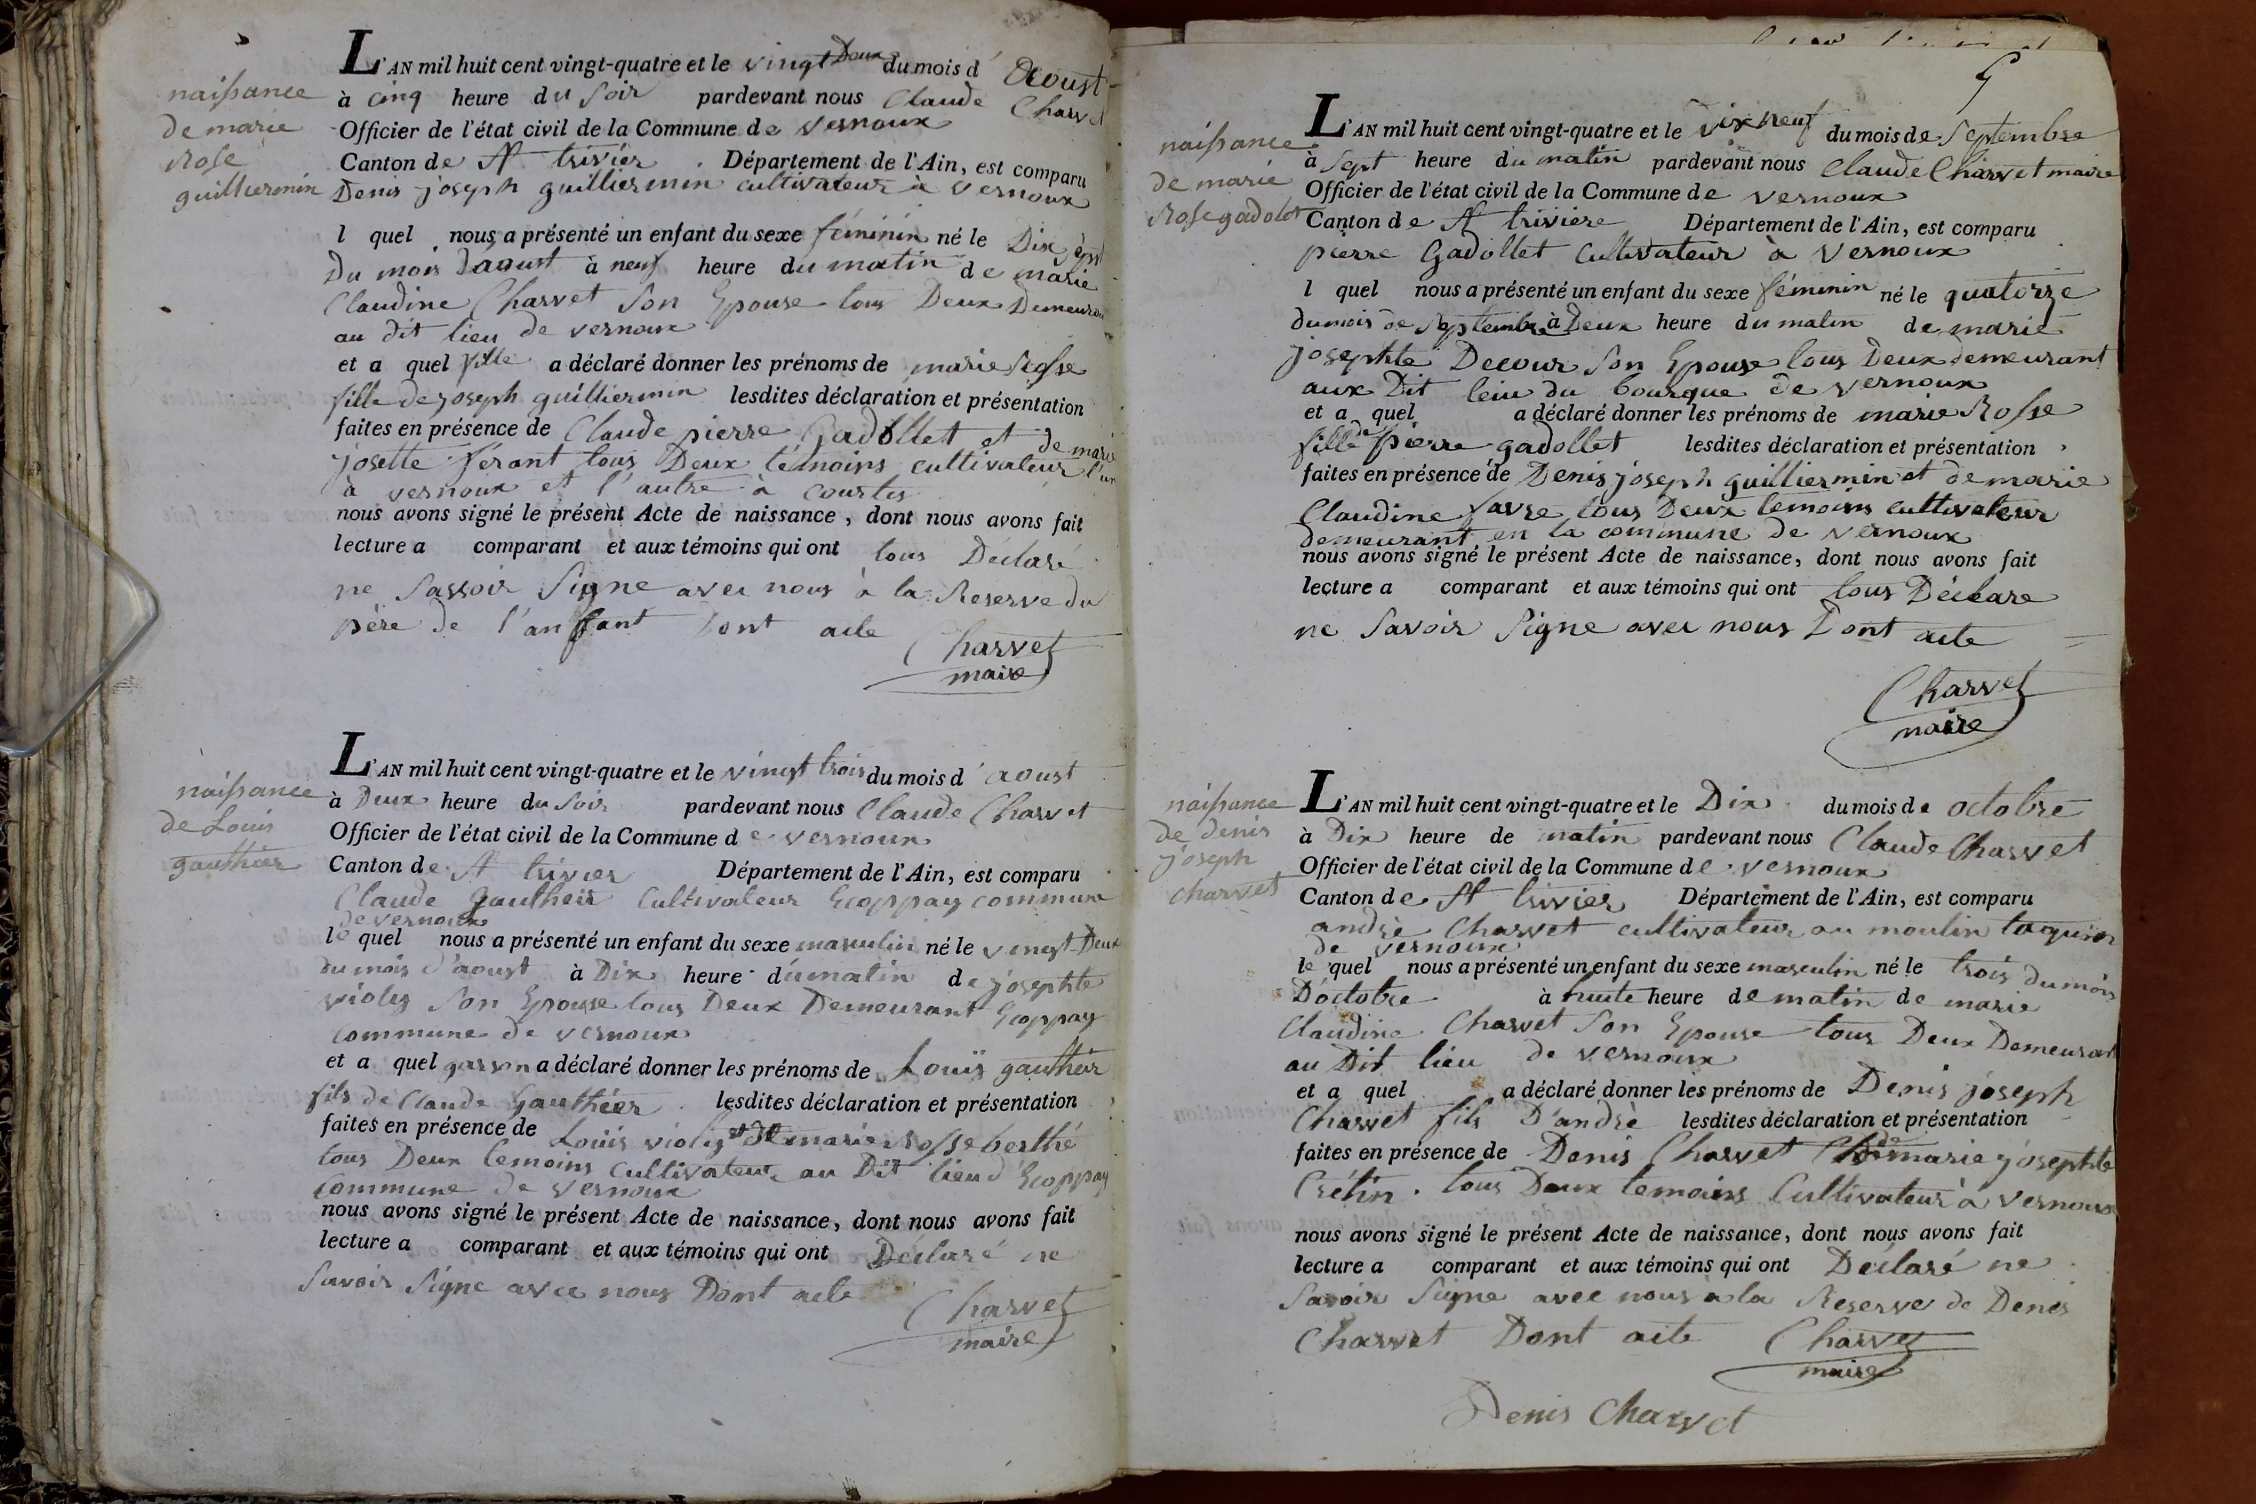 naissance
de marie
Rose
guilliermin
L'AN mil huit cent vingt-quatre et le vingt Deux du mois d'Aoust
à cinq heure du Soir pardevant nous Claude Charvet
Officier de l'état civil de la Commune de vernoux
Canton de St trivier . Département de l'Ain, est comparu
Denis joseph guilliermin cultivateur à vernoux
l quel nous a présenté un enfant du sexe féminin né le Dix sept
Du mois Daoust à neuf heure du matin de marie
Claudine Charvet Son Epouse tous Deux Demeurant
au dit lieu de vernoux
et a quel fille a déclaré donner les prénoms de marie Rosse
fille de joseph guilliermin lesdites déclaration et présentation
faites en présence de Claude pierre Gadollet et de marie
josette férant tous Deux témoins cultivateur l'un
à vernoux et l'autre à Courtes
nous avons signé le présent Acte de naissance, dont nous avons fait
lecture a comparant et aux témoins qui ont tous Déclaré
ne Savoir Signe avec nous à la Reserve du
père de l'anffant Dont acte
Charvet
maire
naissance
de Louis
gauthier
L'AN mil huit cent vingt-quatre et le vingt trois du mois d'aoust
à Deux heure du Soir pardevant nous Claude Charvet
Officier de l'état civil de la Commune de vernoux
Canton de St trivier Département de l'Ain, est comparu
Claude gautheir Cultivateur Ecoppay commune
de vernoux
le quel nous a présenté un enfant du sexe masculin né le vingt Deux
du mois d'aoust à Dix heure du matin de josephte
violy Son Epouse tous Deux Demeurant Ecoppay
commune de vernoux
et a quel garson a déclaré donner les prénoms de Louis gautheir
fils de Claude Gauthier lesdites déclaration et présentation
faites en présence de Louis violy et de marie Rosse berthé
tous Deux temoins cultivateur au Dit lieu d'Ecoppay
commune de vernoux
nous avons signé le présent Acte de naissance, dont nous avons fait
lecture a comparant et aux témoins qui ont Déclaré ne
Savoir Signe avce nous Dont acte
Charvet
maire
5
naissance
de marie
Rose gadolet
L'AN mil huit cent vingt-quatre et le Dix neuf du mois de Septembre
à Sept heure du matin pardevant nous Claude Charvet maire
Officier de l'état civil de la Commune de vernoux
Canton de St triviere Département de l'Ain, est comparu
pierre Gadollet Cultivateur à vernoux
l quel nous a présenté un enfant du sexe féminin né le quatorze
du mois de Septembre à Deux heure du matin de marie
josephte Decour Son Epouse tous Deux demeurant
aux Dit leiu du bourque de vernoux
et a quel a déclaré donner les prénoms de marie Rosse
fille de pierre gadollet lesdites déclaration et présentation
faites en présence de Denis joseph guilliermin et de marie
Claudine favre tous Deux temoins cultivateur
demeurant en la commune de vernoux
nous avons signé le présent Acte de naissance, dont nous avons fait
lecture a comparant et aux témoins qui ont tous Déclare
ne Savoir Signe avec nous Dont acte
Charvet
maire
naissance
de denis
joseph
charvet
L'AN mil huit cent vingt-quatre et le Dix du mois de octobre
à Dix heure de matin pardevant nous Claude Charvet
Officier de l'état civil de la Commune de vernoux
Canton de St trivier Département de l'Ain, est comparu
andrè Charvet cultivateur au moulin
de vernoux
le quel nous a présenté un enfant du sexe masculin né le trois du mois
D'octobre à huite heure de matin de marie
Claudine Charvet Son Epouse tous Deux Demeurant
au Dit lieu de vernoux
et a quel a déclaré donner les prénoms de Denis joseph
Charvet fils D'andrè lesdites déclaration et présentation
faites en présence de Denis Charvet de marie josephte
Crétin . tous Deux temoins Cultivateur à vernoux
nous avons signé le présent Acte de naissance, dont nous avons fait
lecture a comparant et aux témoins qui ont Déclaré ne
Savoir Signe avec nous a la Reserve de Denis
Charvet Dont acte
Charvet
maire
Denis Charvet